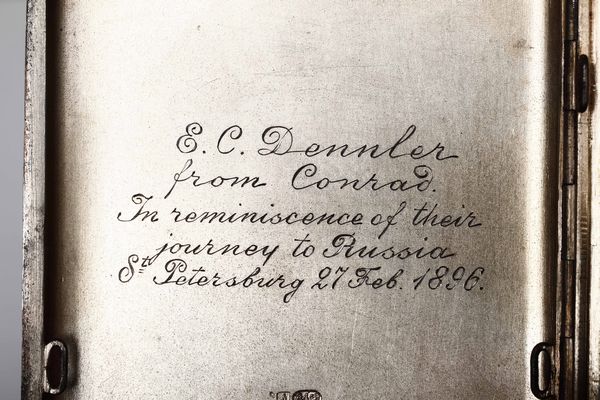 E. C. Dennler
from Conrad.
In reminiscence of their
journey to Russia
St Petersburg 27 Feb. 1896.